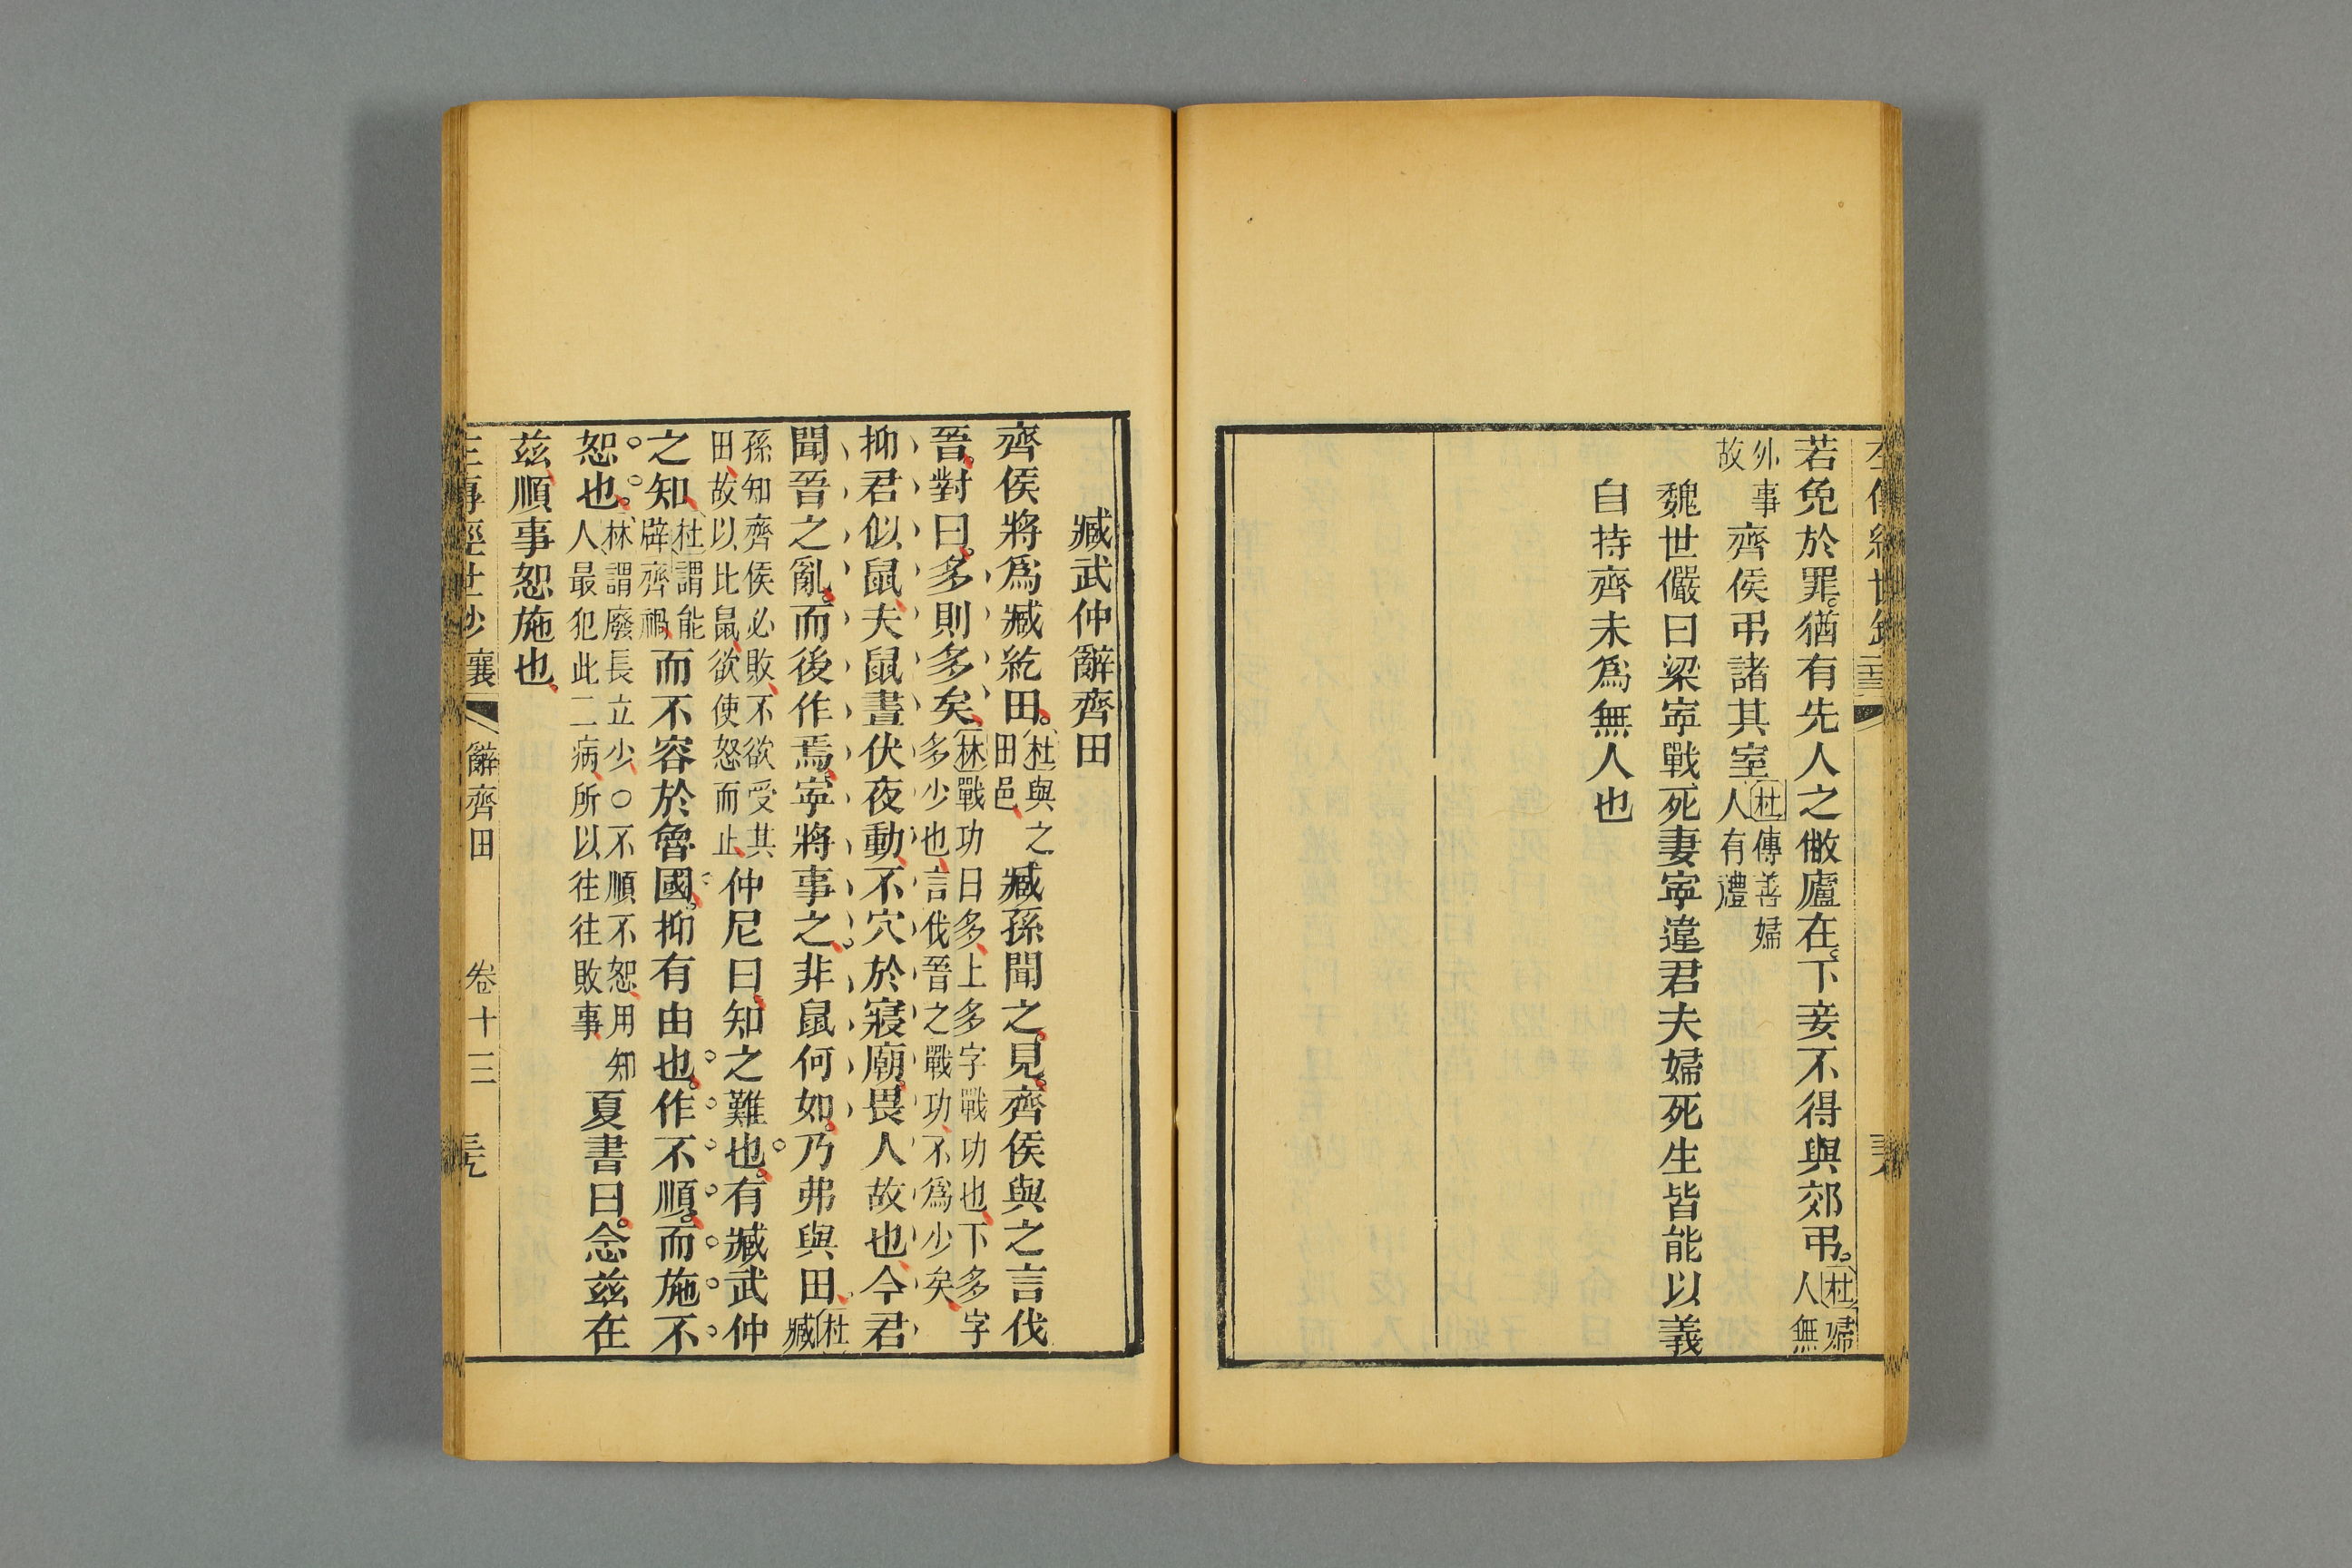 若免於罪猶有先人之敝廬在下妾不得與郊弔杜婦人無
外事故齊侯弔諸其室杜傳善婦人有禮
魏世儼曰梁寍戰死妻寍違君夫婦死生皆能以義
自持齊未爲無人也
臧武仲辭齊田
齊侯將爲臧紇田杜與之田邑臧孫聞之見齊侯與之言伐
晉對曰多則多矣林戰功曰多上多字戰功也下多字多少也言伐晉之戰功不爲少矣
抑君似鼠夫鼠晝伏夜動不穴於寢廟畏人故也今君
聞晉之亂而後作焉寍將事之非鼠何如乃弗與田杜臧
孫知齊侯必敗不欲受其田故以比鼠欲使怒而止仲尼曰知之難也有臧武仲
之知杜謂能辟齊禍而不容於魯國抑有由也作不順而施不
恕也林謂廢長立少○不順不恕用知人最犯此二病所以往往敗事夏書曰念茲在
茲順事恕施也
襄 辭齊田 卷十三